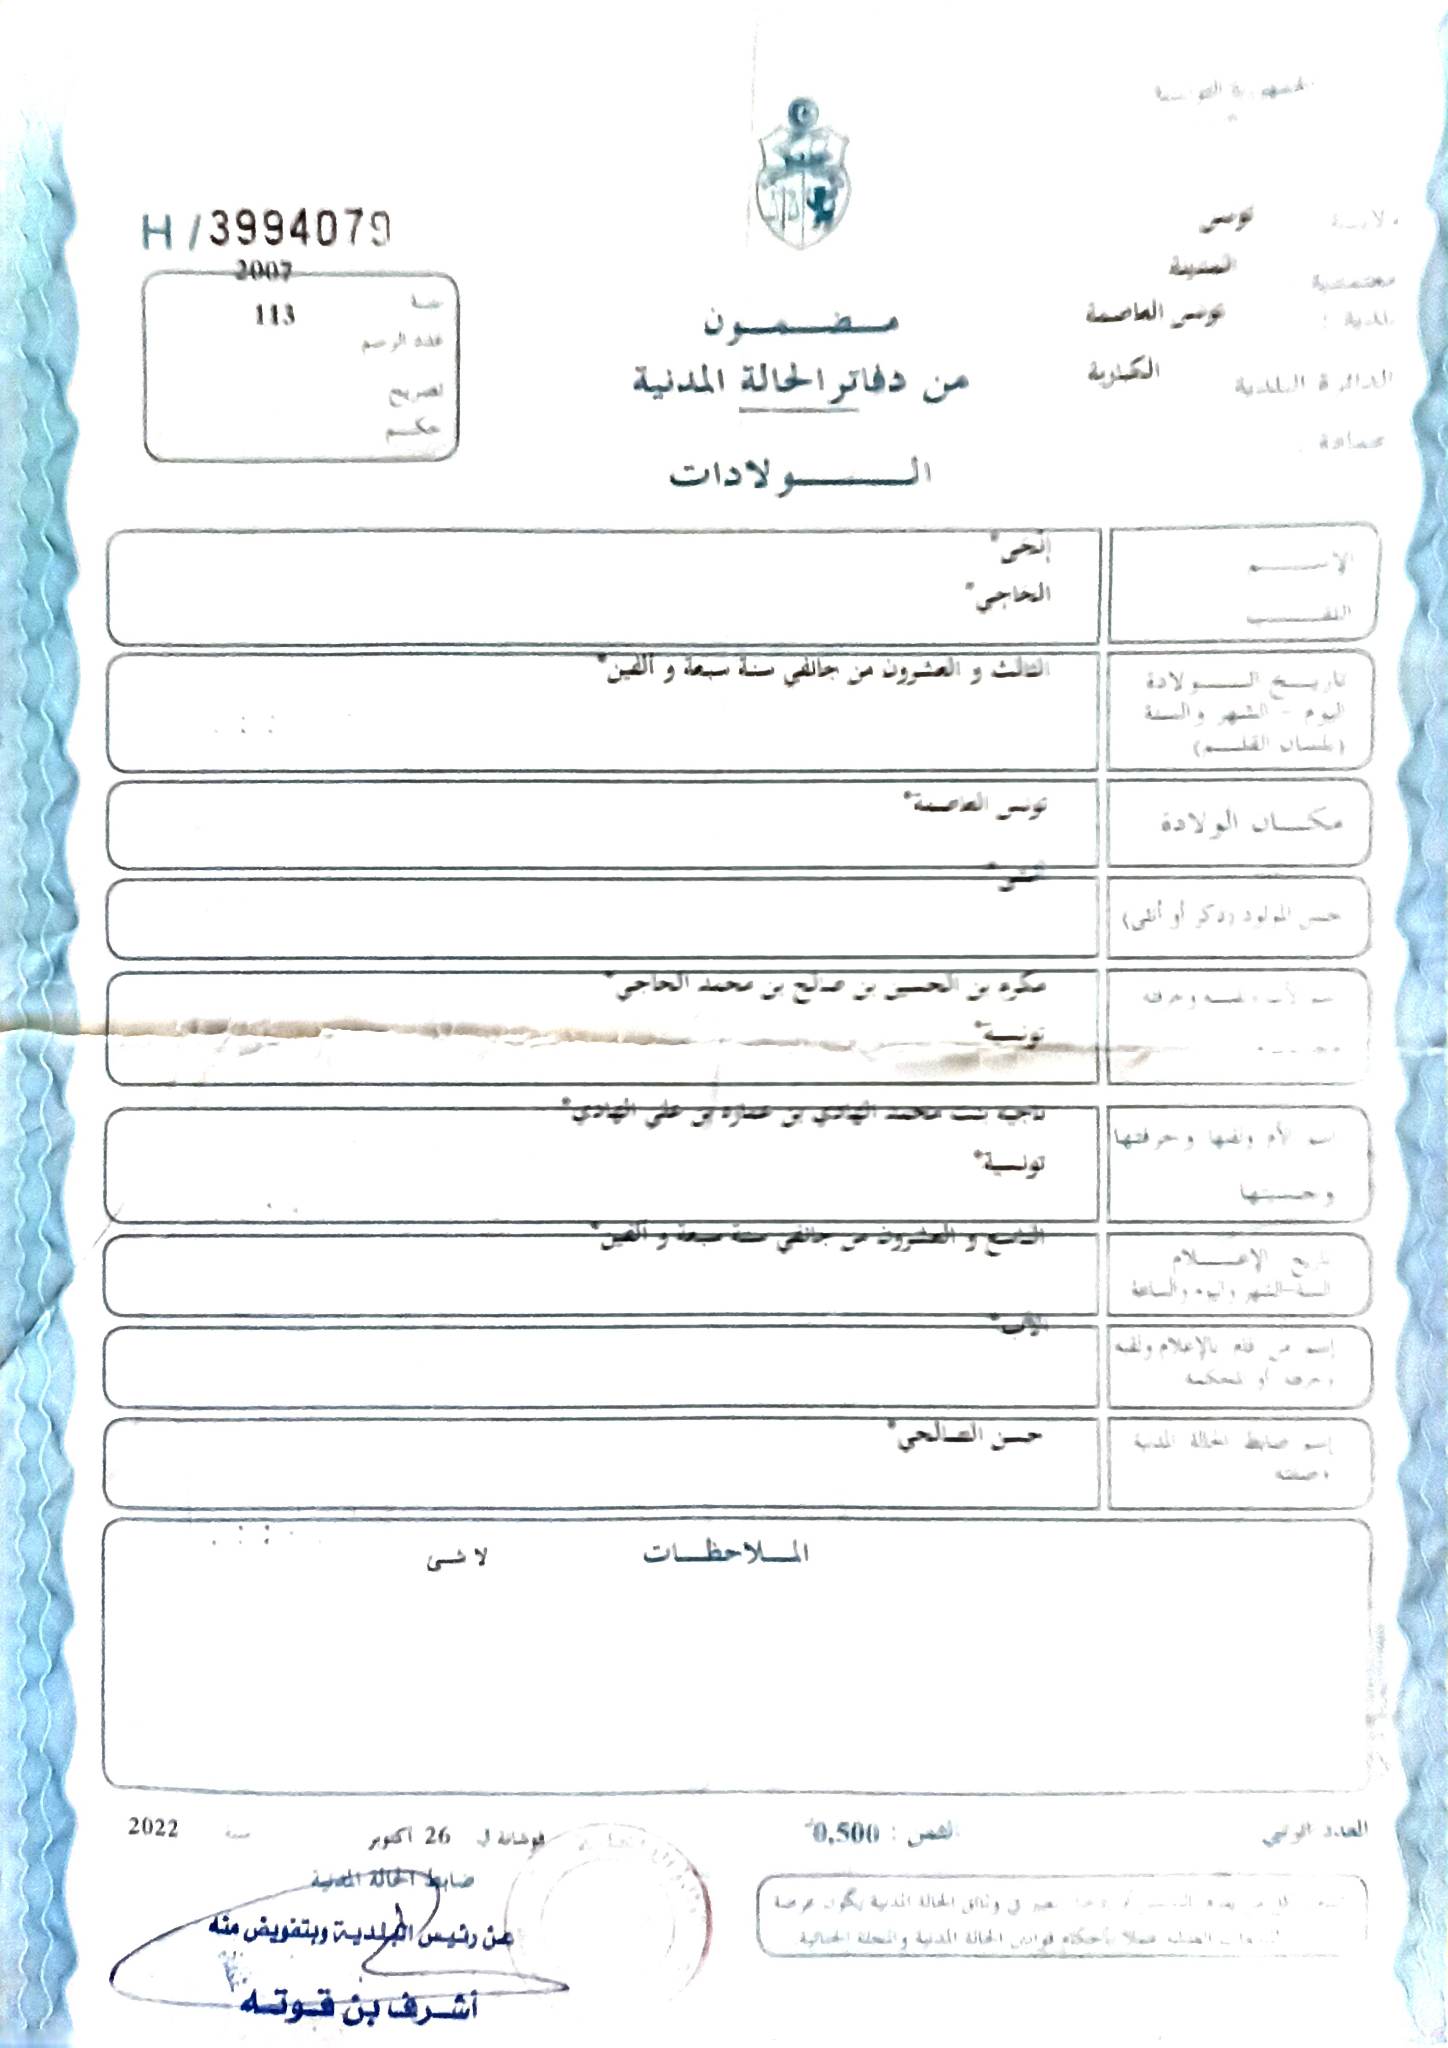 الجمهورية التونسية
H / 3994079
ولاية تونس
معتمدية المدينة
بلدية : تونس العاصمة
الدائرة البلدية الكبارية
عمادة
سنة 2007
عدد الرسم 113
تصريح
حكم
مضمون
من دفاتر الحالة المدنية
الولادات
الإسم
اللقب الحاجي*
تاريخ الولادة الثالث و العشرون من جانفي سنة سبعة و ألفين*
اليوم - الشهر والسنة
(بلسان القلم)
مكان الولادة تونس العاصمة*
جنس المولود (ذكر أو أنثى) أنثى*
بن الحسين بن صالح بن محمد الحاجي*
تونسية*
اسم الأم ولقبها وحرفتها ناجية بنت محمد الهادي بن عمارة بن علي الهادي*
وجنسيتها تونسية*
تاريخ الإعلام التاسع و العشرون من جانفي سنة سبعة و ألفين*
السنة-الشهر واليوم والساعة
إسم من قام بالإعلام ولقبه الأب*
وحرفته أو المحكمة
إسم ضابط الحالة المدنية حسن الصالحي*
وصفته
الملاحظات لا شى
العدد الرتبي
الثمن : 0,500
فوشانة في 26 أكتوبر سنة 2022
ضابط الحالة المدنية
عن رئيس البلدية وبتفويض منه
أشرف بن قوته
في وثائق الحالة المدنية يكون عرضة
عملا بأحكام قوانين الحالة المدنية والمجلة الجنائية